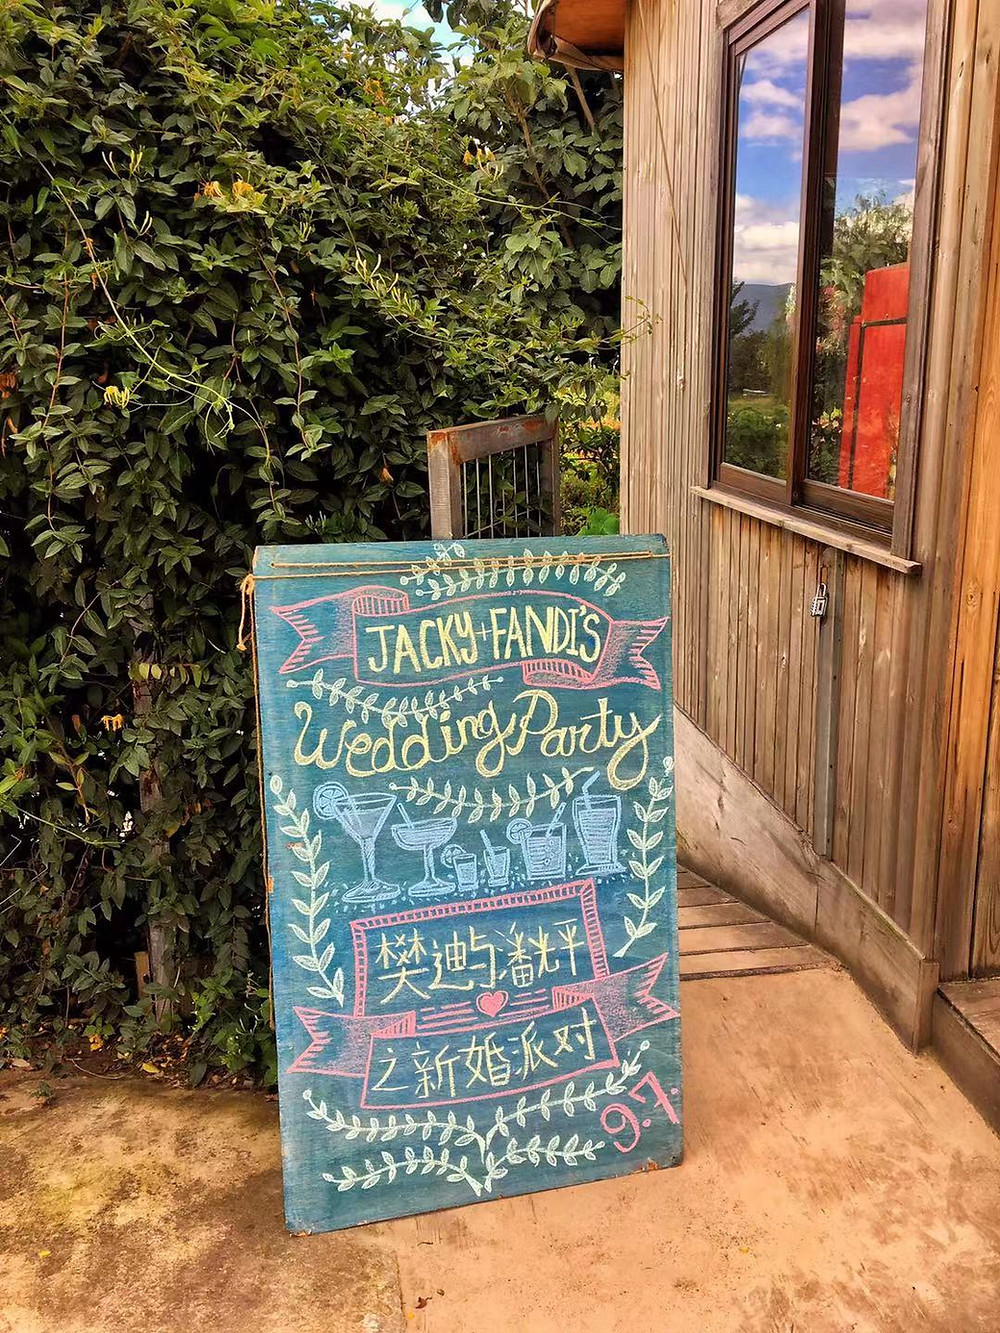 JACKY+FANDI'S
Wedding Party
樊迪与潘光平
之新婚派对
9.7.